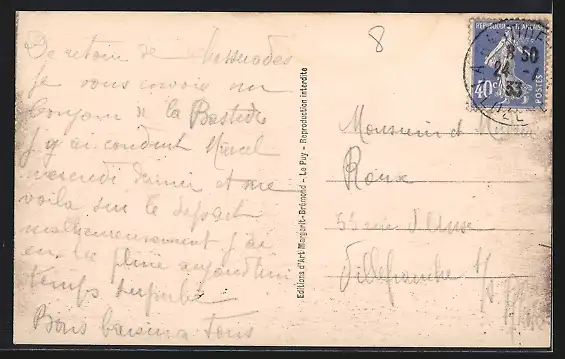 De retour de
je vous envoie un
bonjour de la Bastide
J'y ai conduit Marcel
mercredi dernier et me
voila sur le depart
malheureusement j'ai
eu la pluie aujourd'hui
temps superbe
Bons baisers a tous
Editions d'Art Margerit-Brémond - Le Puy - Reproduction interdite
8
REPUBLIQUE FRANÇAISE
40c
POSTES
8 50
24
33
Monsieur et Madame
Roux
rue d'Anse
Villefranche s/s